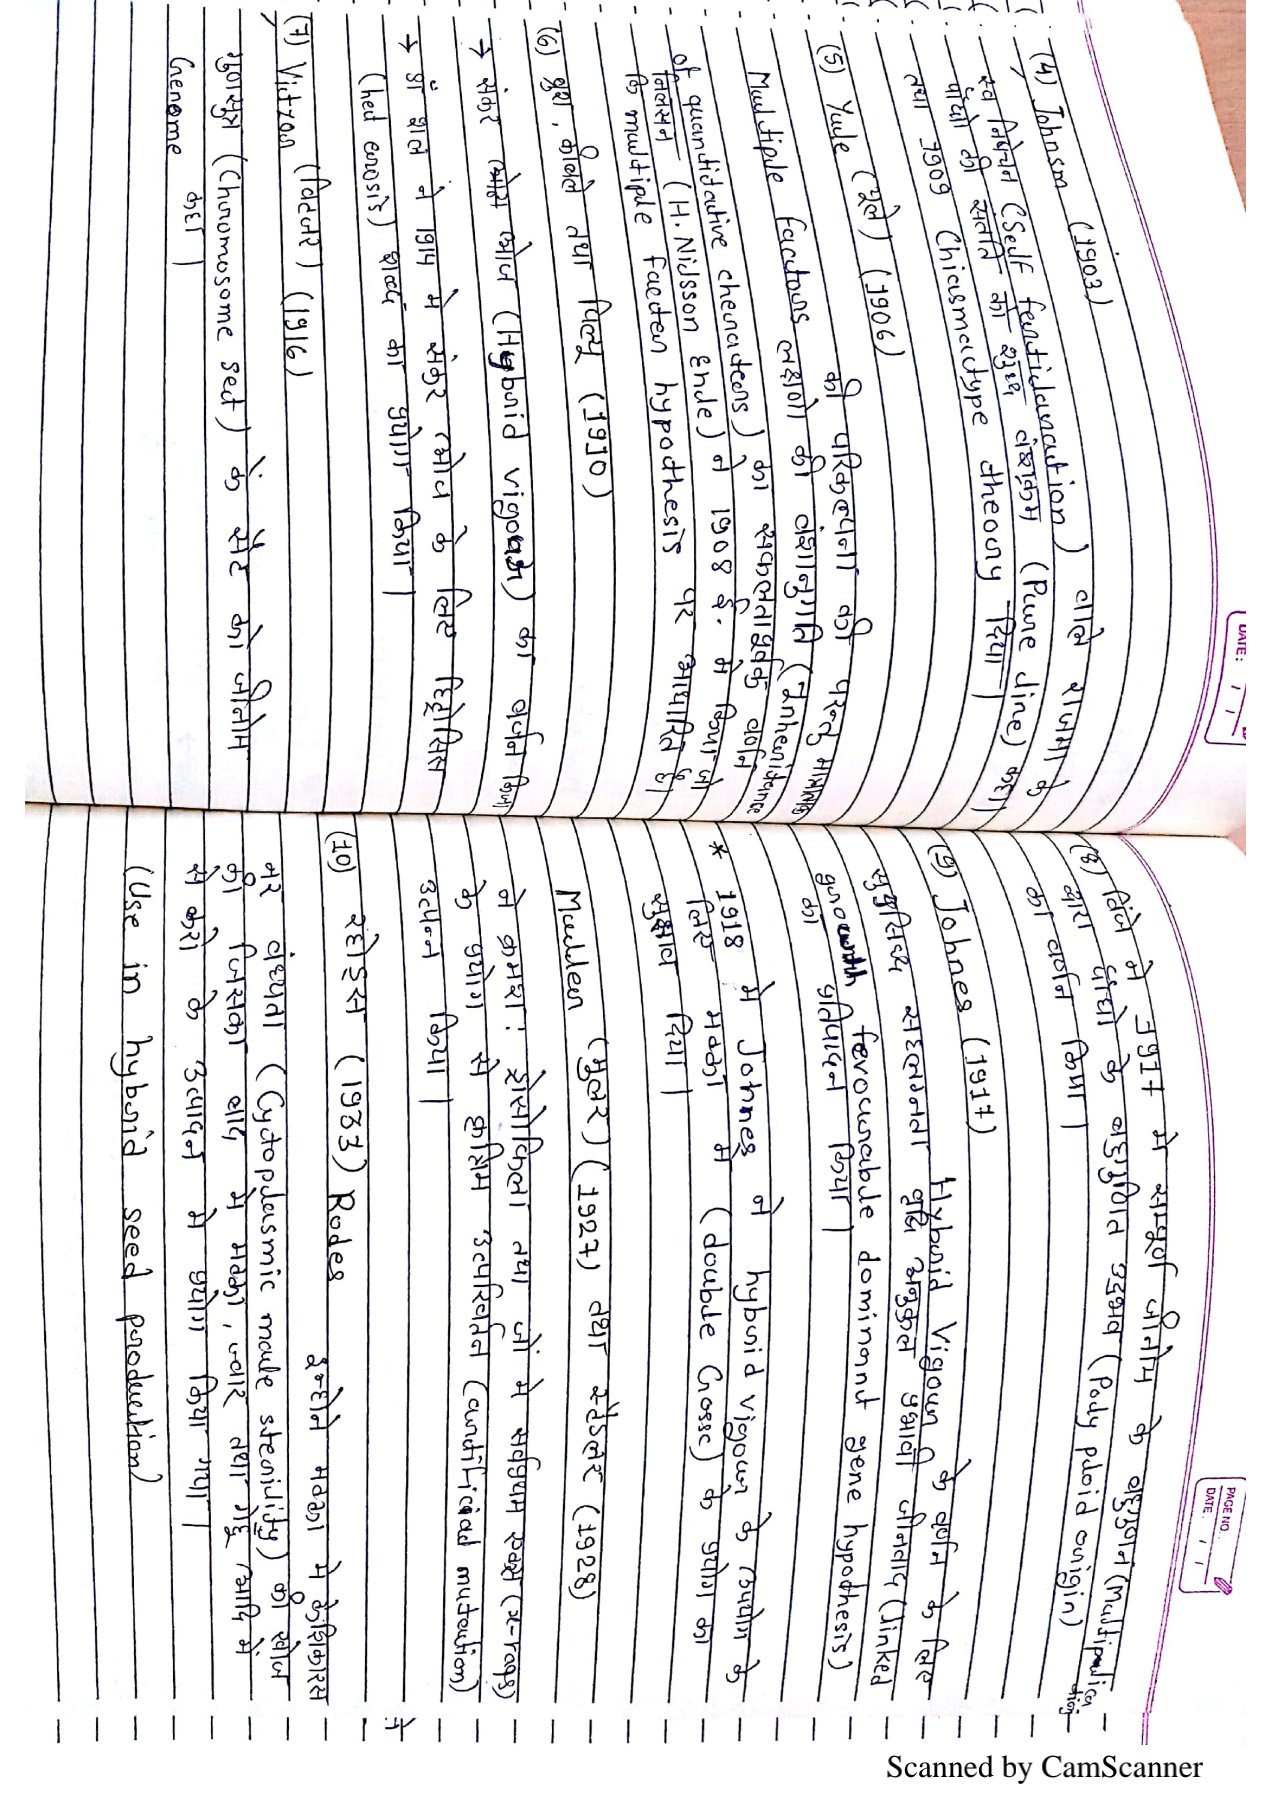 DATE: / /
(4) Johnson (1903)
स्व निषेचन (Self fertidanaution) वाले राजमा के
पौधो की सतति को शुद्ध वंशक्रम (Pure line) कहा।
तथा 1909 Chiasmatype theory दिया।
(5) Yule (यूले) (1906)
की परिकल्पना की परन्तु
Multiple factors लक्षणो की वंशानुगति (Inheritance
of quantitative characters) का सफलतापूर्वक वर्णन
निलसन (H. Nilsson Ehle) ने 1908 ई. मे किया जो
कि multiple factor hypothesis पर आधारित है।
(6) ब्रुश, कीबले तथा पिल्यू (1910)
→ संकर ओज (Hybrid vigour) का वर्णन किया
→ डॉ शल ने 1914 मे संकर ओज के लिए हिट्रोसिस
(heterosis) शब्द का प्रयोग किया।
(7) Vitzor (विटजर) (1916)
गुणसुत्र (Chromosome set) के सेट को जीनोम
Genome कहा।
PAGE NO.
DATE: / /
(8) विंगे ने 1917 मे सम्पूर्ण जीनोम के बहुगुणन (Multiplication
द्वारा पौधो के बहुगुणित उद्भव (Poly ploid origin)
का वर्णन किया।
(9) Johnes (1917)
Hybrid Vigour के वर्णन के लिए
सुप्रसिध्द सहलग्नता वृद्धि अनुकुल प्रभावी जीनवाद (linked
growth fevourable dominant gene hypothesis)
का प्रतिपादन किया।
* 1918 मे Johnes ने hybrid vigour के उपयोग के
लिए मक्का मे (double Crosse) के प्रयोग का
सुझाव दिया।
Muller (मुलर) (1927) तथा स्टेडलर (1928)
ने क्रमशः ड्रोसोफिला तथा जौ मे सर्वप्रथम एक्स (x-rays)
के प्रयोग से कृत्रिम उत्परिवर्तन (artificial mutation)
उत्पन्न किया।
(10) रहोड्स (1933) Rodes
इन्होने मक्का मे कोशिकारस
नर वंध्यता (Cytoplasmic male sterility) की खोज
की जिसका बाद मे मक्का, ज्वार तथा गेहू आदि मे
संकरो के उत्पादन मे प्रयोग किया गया।
(Use in hybrid seed production)
Scanned by CamScanner